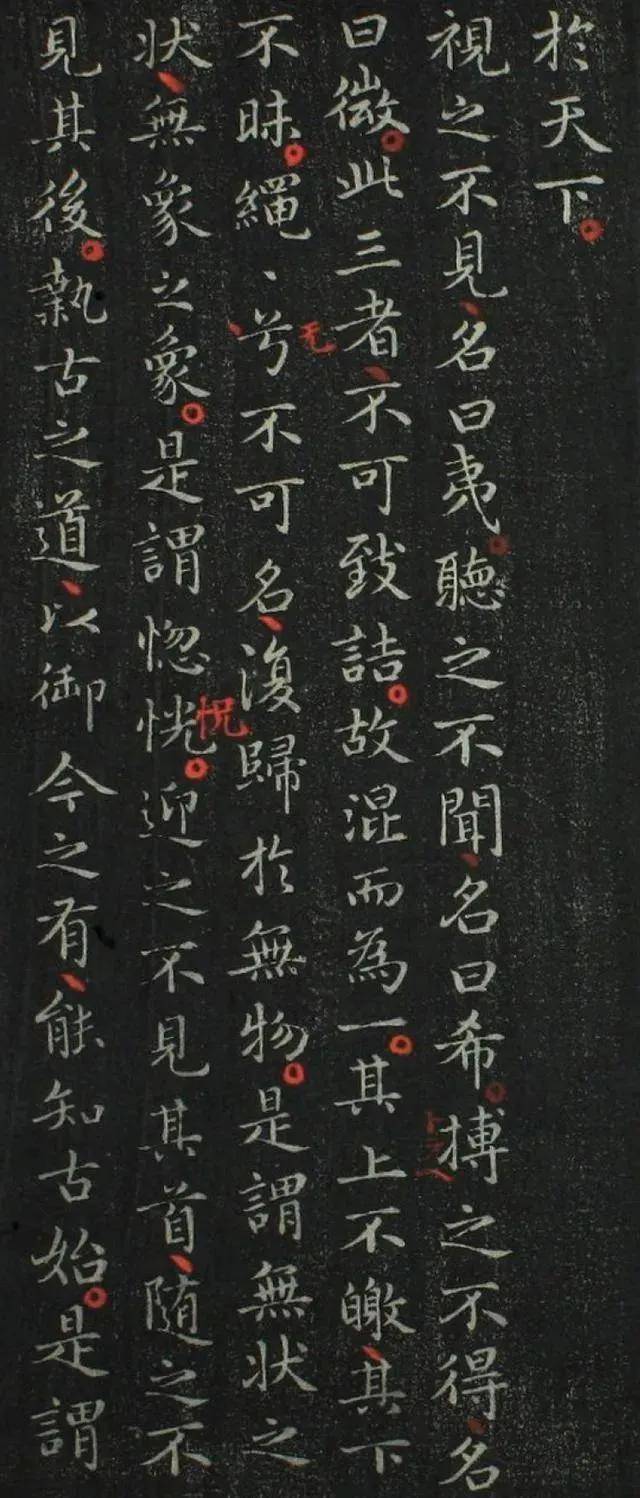 於天下。
視之不見、名曰夷。聽之不聞、名曰希。搏之不得、名
曰微。此三者、不可致詰。故混而為一。其上不皦、其下
不昧。繩〻、兮不可名、復歸於無物。是謂無状之
状、無象之象。是謂惚恍。迎之不見其首、随之不
見其後。執古之道、以御今之有、能知古始。是謂
无
怳